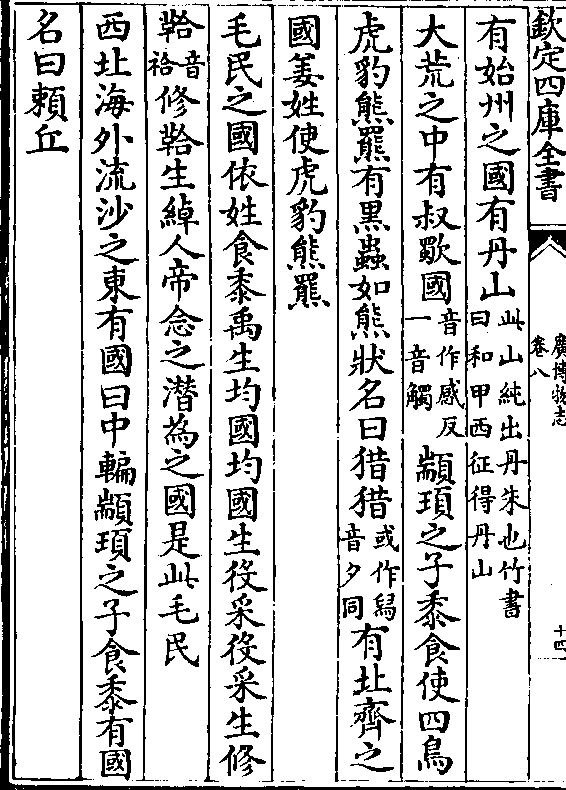 欽定四庫全書
廣博物志
卷八
十四
有始州之國有丹山此山純出丹朱也竹書
曰和甲西征得丹山
大荒之中有叔歜國音作感反
一音觸顓頊之子黍食使四鳥
虎豹熊羆有黑蟲如熊狀名曰猎猎或作舄
音夕同有北齊之
國姜姓使虎豹熊羆
毛民之國依姓食黍禹生均國均國生役采役采生修
鞈音
袷修鞈生綽人帝念之潛為之國是此毛民
西北海外流沙之東有國曰中輪顓頊之子食黍有國
名曰賴丘